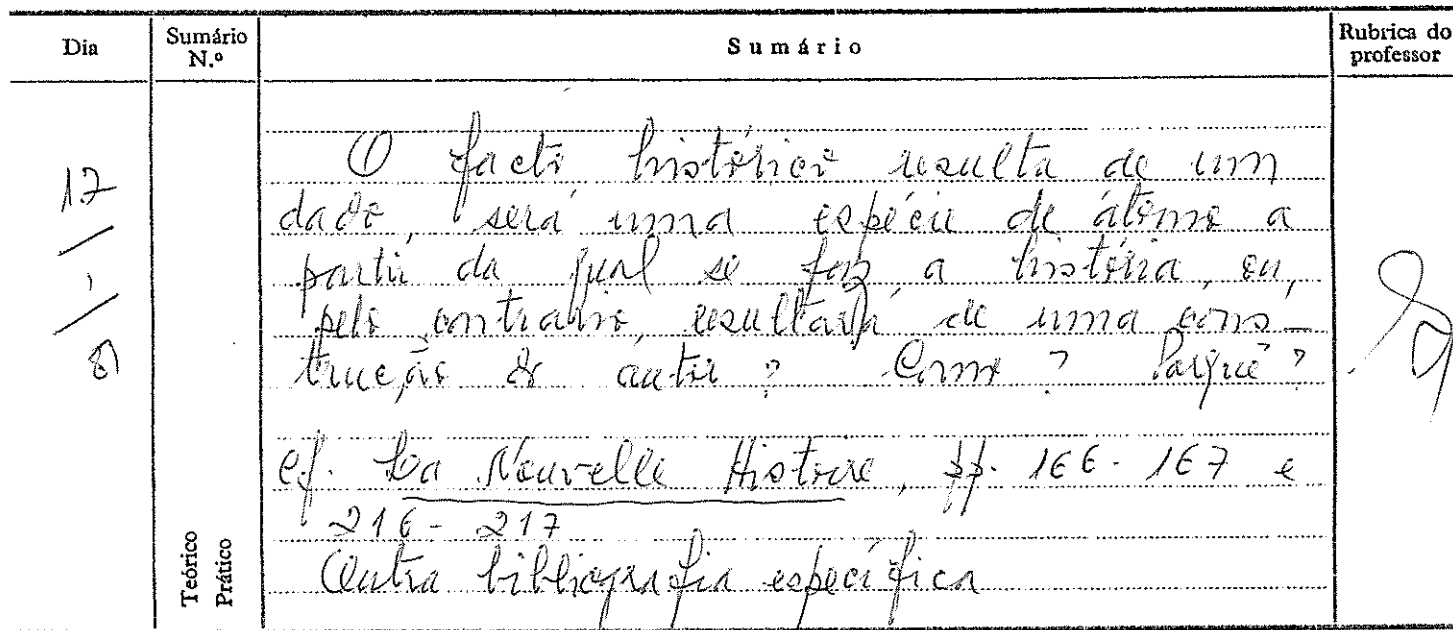 Dia
Sumário N.º
Sumário
Rubrica do professor
17
1
81
O facto histórico resulta de um
dado, será uma espécie de átomo a
partir da qual se faz a história, ou,
pelo contrário, resultará de uma cons-
trução do autor? Como? Porquê?
cf. La Nouvelle Histoire, pp. 166-167 e
216-217
Outra bibliografia específica
Teórico
Prático